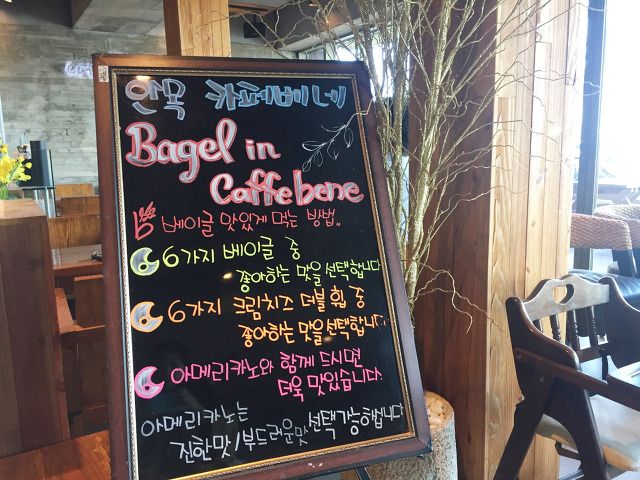 안목 카페베네
Bagel in
Caffebene
베이글 맛있게 먹는 방법..
6가지 베이글 중
좋아하는 맛을 선택합니다
6가지 크림치즈 더블휩 중
좋아하는 맛을 선택합니다
아메리카노와 함께 드시면
더욱 맛있습니다.
아메리카노는
진한맛/부드러운맛 선택가능해합니다